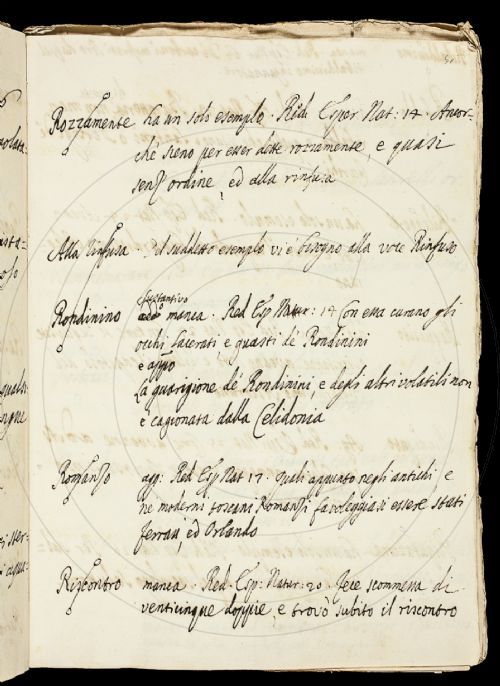 Rozzamente ha un solo esempio. Red. Esper. Nat: 14. Ancor-
chè sieno per esser dette rozzamente, e quasi
senz'ordine, ed alla rinfusa
Alla rinfusa. il suddetto esempio vi è bisogno alla voce Rinfuso
sustantivo
Rondinino manca. Red. Esp. Natur: 14 Con essa curano gli
occhi lacerati, e guasti de' Rondinini
e appo
La guarigione de' Rondinini, e degli altri volatili non
è cagionata dalla Celidonia
Romanzo agg: Red. Esp. Nat. 17. quali appunto negli antichi, e
ne moderni toscani Romanzi favoleggiasi essere stati
ferrau, ed Orlando
Riscontro manca. Red. Esp: Natur: 20. Fece scommessa di
venticinque doppie, e trovò subito il riscontro